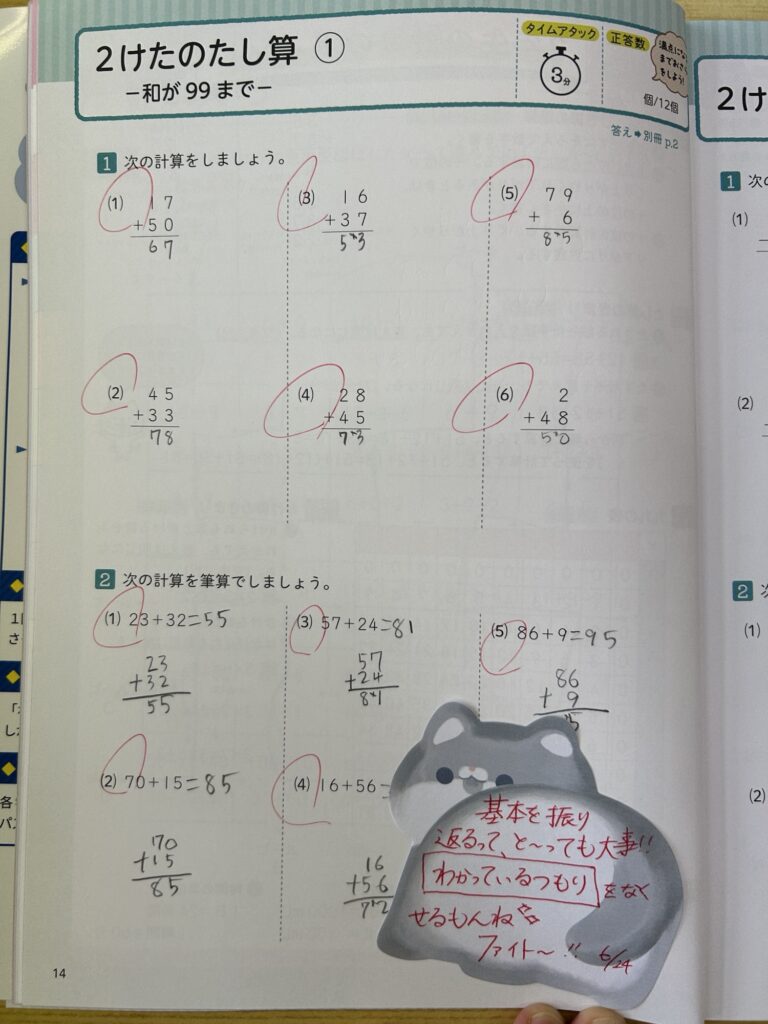 2けたのたし算 ①
－和が99まで－
タイムアタック
3分
正答数
個/12個
答え➡別冊 p.2
1 次の計算をしましょう。
(1) 17
+50
67
(3) 16
+37
53
(5) 79
+ 6
85
(2) 45
+33
78
(4) 28
+45
73
(6) 2
+48
50
2 次の計算を筆算でしましょう。
(1) 23+32=55
23
+32
55
(3) 57+24=81
57
+24
81
(5) 86+9=95
86
+ 9
(2) 70+15=85
70
+15
85
(4) 16+56=
16
+56
72
基本を振り
返るって、と〜っても大事!!
わかっているつもりをなく
せるもんね
ファイト〜!!
6/24
14
2け
1 次の
(1)
(2)
2 次
(1)
(2)